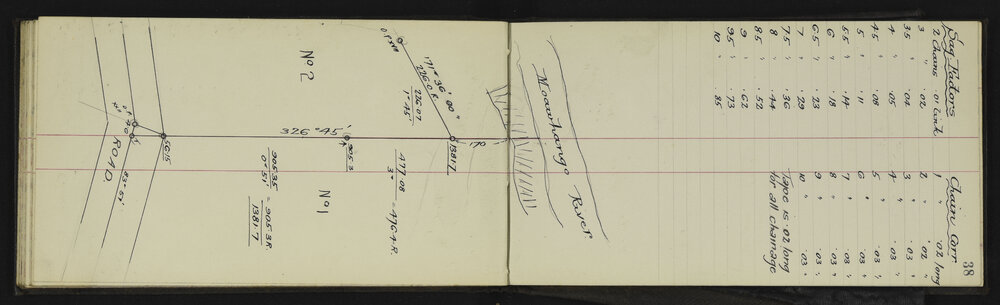 38
Sag Factors
2 Chains .01 link
3 " .02 "
3.5 " .04
4 " .05
4.5 " .08
5 " .11
5.5 " .14
6 " .18
6.5 " .23
7 " .29
7.5 " .36
8 " .44
8.5 " .52
9 " .62
9.5 " .73
10 " .85
Chain Corr
1 " .02 long
2 " .02 "
3 " .03 "
4 " .03 "
5 " .03 "
6 " .03 "
7 " .03 "
8 " .03 "
9 " .03 "
10 " .03 "
Tape is .02 long
for all chainage
Moawhango River
No 2
171° 36' 00"
2260 R.
2260.7
1° 45'
1381.7
170
326° 45'
905.3
477.08 = 476.4 R.
3°
No 1
905.35 = 905.3 R.
0° 51'
1381.7
ROAD.
83° 57'